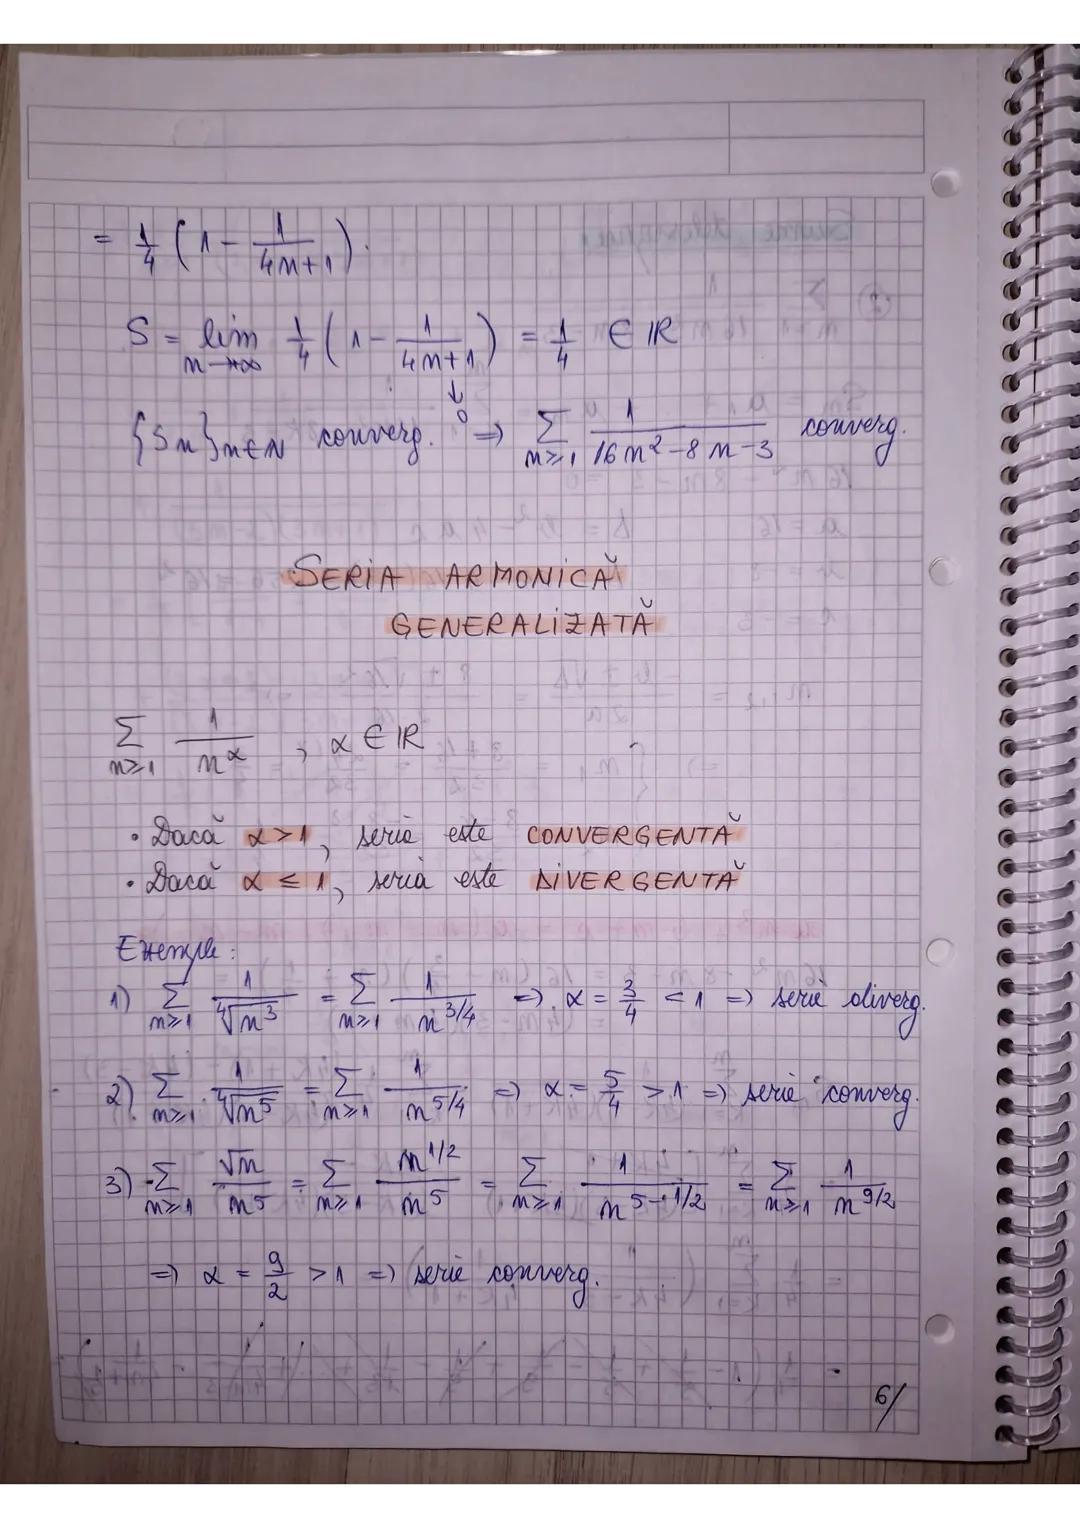 = 1/4 (1 - 1/(4n+1)).
S = lim n→∞ 1/4 (1 - 1/(4n+1)) = 1/4 ∈ IR
↓
0
{Sn}n∈N converg. ⇒ Σ n≥1 1/(16n² - 8n - 3) converg.
SERIA ARMONICĂ
GENERALIZATĂ
Σ n≥1 1/n^α , α ∈ IR
• Dacă α > 1, seria este CONVERGENTĂ
• Dacă α ≤ 1, seria este DIVERGENTĂ
Exemple:
1) Σ n≥1 1/⁴√n³ = Σ n≥1 1/n^3/4 ⇒ α = 3/4 < 1 ⇒ serie diverg.
2) Σ n≥1 1/⁴√n⁵ = Σ n≥1 1/n^5/4 ⇒ α = 5/4 > 1 ⇒ serie converg.
3) Σ n≥1 √n/n⁵ = Σ n≥1 n^1/2/n⁵ = Σ n≥1 1/n^(5-1/2) = Σ n≥1 1/n^9/2
⇒ α = 9/2 > 1 ⇒ serie converg.
6/